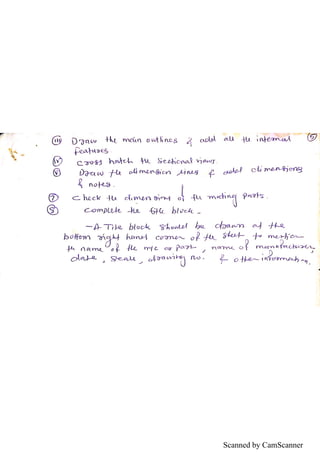 (iii) Draw the main outlines & add all the internal (5)
features
(iv) Cross hatch the Sectional views.
(v) Draw the dimension lines & add dimensions
& notes.
(7) Check the dimensions of the mating parts.
(8) Complete the title block.
- A Title block should be drawn at the
bottom right hand corner of the sheet to mention
the name of the m/c or part, name of manufacturer,
date, scale, drawing no. & other information.
Scanned by CamScanner